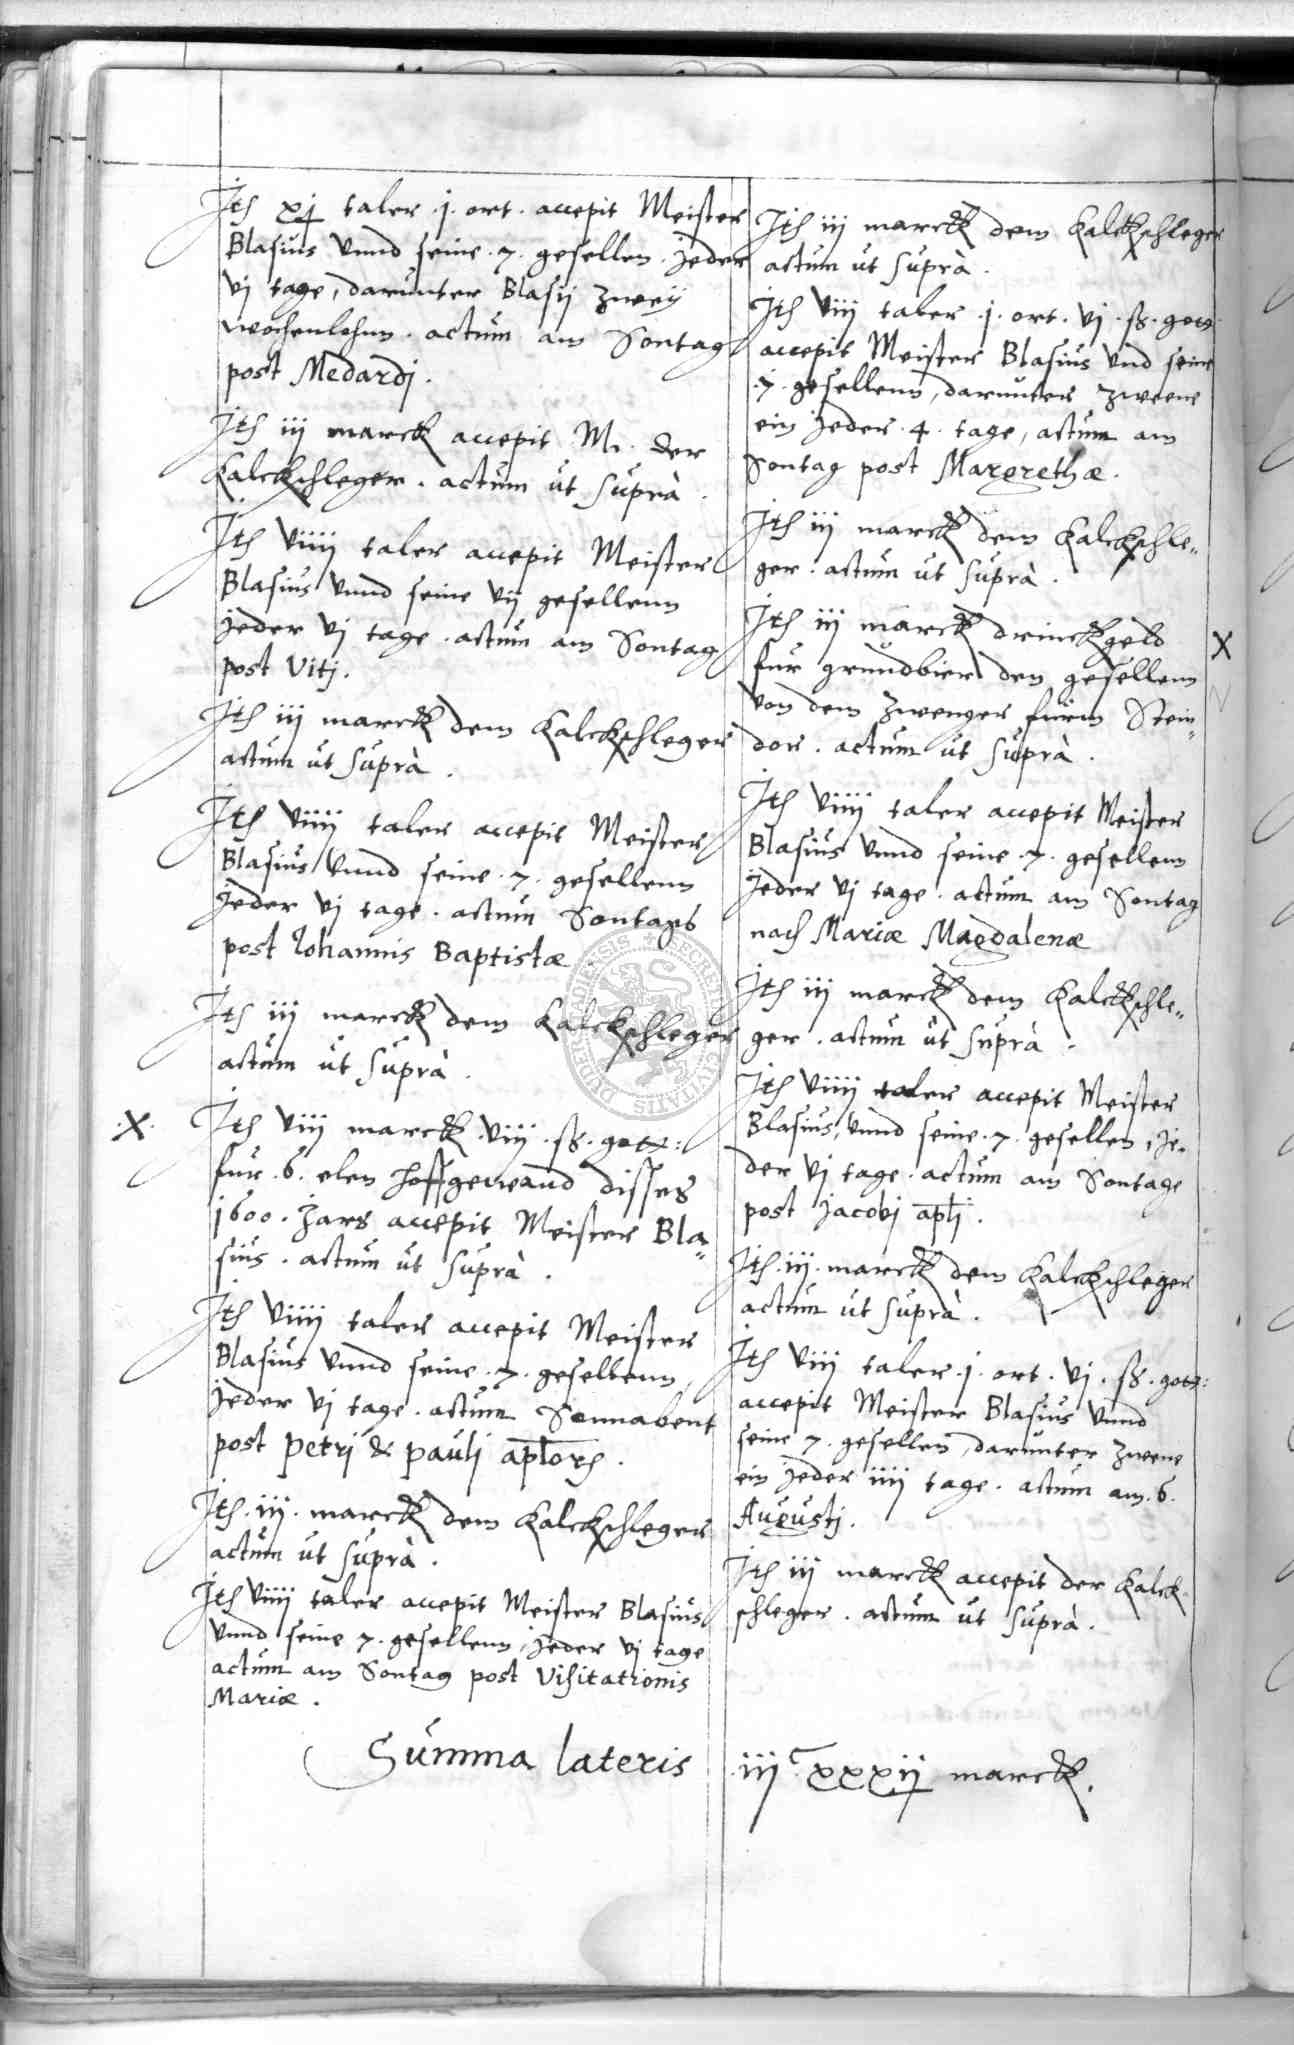 Jtem xj taler .j. ort. accepit Meister
Blasius vnnd seine .7. gesellen. jeder
vj tage, darunter Blasij zweij
wochenlohnn. actum am Sontag
post Medardj.
Jtem iij marck accepit M. der
Kalckschleger. actum ut suprà.
Jtem viiij taler accepit Meister
Blasius vnnd seine vij gesellenn
jeder vj tage. actum am Sontag
post Vitj.
Jtem iij marck dem Kalckschleger
actum ut suprà.
Jtem viiij taler accepit Meister
Blasius vnnd seine .7. gesellenn
jeder vj tage. actum Sontags
post Johannis Baptistæ.
Jtem iij marck dem Kalckschleger
actum ut suprà.
.X. Jtem viij marck .viij. ß. gott:
fur .6. elen hoffgewand disses
1600. Jars accepit Meister Bla„
sius. actum ut suprà.
Jtem viiij taler accepit Meister
Blasius vnnd seine .7. gesellenn,
jeder vj tage. actum Sonnabent
post petrj & paulj aplorum.
Jtem .iij. marck dem Kalckschleger
actum ut suprà.
Jtem viiij taler accepit Meister Blasius
vnnd seine 7. gesellenn, jeder vj tage
actum am Sontag post Visitationis
Mariæ.
Jtem iij marck dem Kalckschleger
actum ut suprà.
Jtem viij taler .j. ort. vj. ß. gott.
accepit Meister Blasius vnd seine
.7. gesellenn, darunter zweene
ein jeder .4. tage, actum am
Sontag post Margrethæ.
Jtem iij marck dem Kalckschle„
ger. actum ut suprà.
Jtem iij marck drinckgeld X
fur grundbier den gesellenn
von dem zwenger furm Stein„
dor. actum ut suprà.
Jtem viiij taler accepit Meister
Blasius vnnd seine .7. gesellenn
jeder vj tage. actum am Sontag
nach Mariæ Magdalenæ
Jtem iij marck dem Kalckschle„
ger. actum ut suprà.
Jtem viiij taler accepit Meister
Blasius, vnnd seine .7. gesellen, je„
der vj tage. actum am Sontage
post Jacobj aplj.
Jtem .iij. marck dem Kalckschleger
actum ut suprà.
Jtem viij taler .j. ort. vj. ß. gott:
accepit Meister Blasius vnnd
seine 7. gesellen, darunter zweene
ein jeder iiij tage. actum am .6.
Augustj.
Jtem iij marck accepit der Kalck„
schleger. actum ut suprà.
Summa lateris iij c xxxij marck.
SECRETUM CIVITATIS BUDERSTADIENSIS